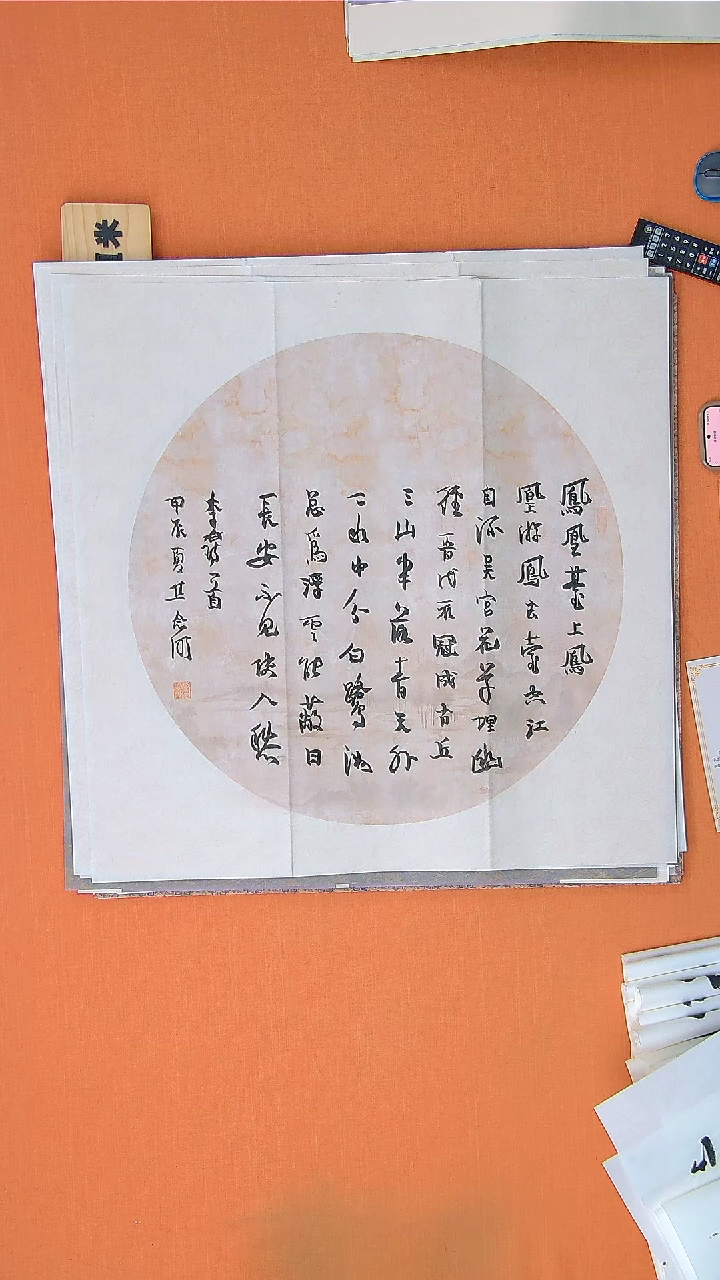 鳳凰臺上鳳
凰游鳳去臺空江
自流吳宮花草埋幽
徑晉代衣冠成古丘
三山半落青天外
二水中分白鷺洲
总爲浮雲能蔽日
長安不見使人愁
李白詩一首
甲辰夏其念河
米